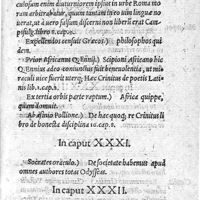 culosum enim diuturniorem
in urbe Roma mo
ram arbitrabatur,
uero
uerat, ut à uero falsum discerni non liberū erat Cam-
pis lib. rom 8. cap.
Expellendos censuit Græcos.) philosophos qui
dem.
Prior Africanus Q. Ennij.) Scipioni Africano hic
Q. Ennius adeo coniunctus fuit beneuolentia, ut mi
raculi uice fuerit uterq;. Hæc Crinitus de poetis Lati
nis lib. 1. cap. 6.
Ex tertia orbis parte raptum.) Africa quippe,
quam domuit.
Ab Asinio Pollione.) De hac quoq; re Crinitus li
bro de honesta disciplina 10. cap. 9.
In caput XXXI.
Socratis oraculo.) De societate habenuit apud
omnes authores totas Odysseas.
In caput XXXII.